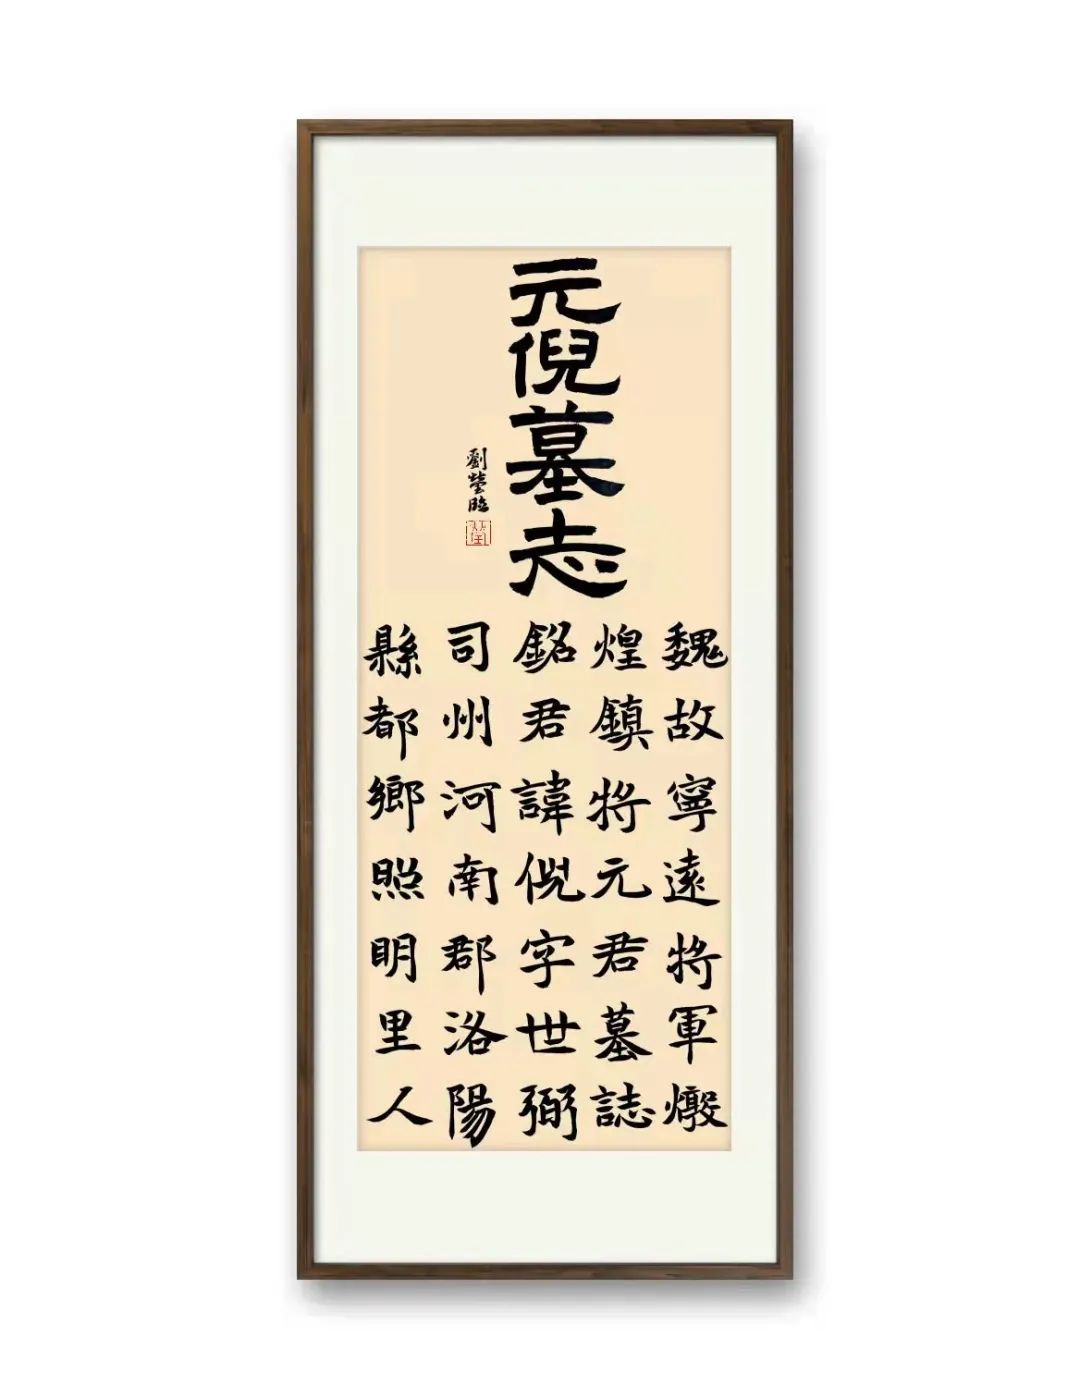 元倪墓志
劉瑩臨
魏故寧遠將軍燉
煌鎮將元君墓誌
銘君諱倪字世弼
司州河南郡洛陽
縣都鄉照明里人